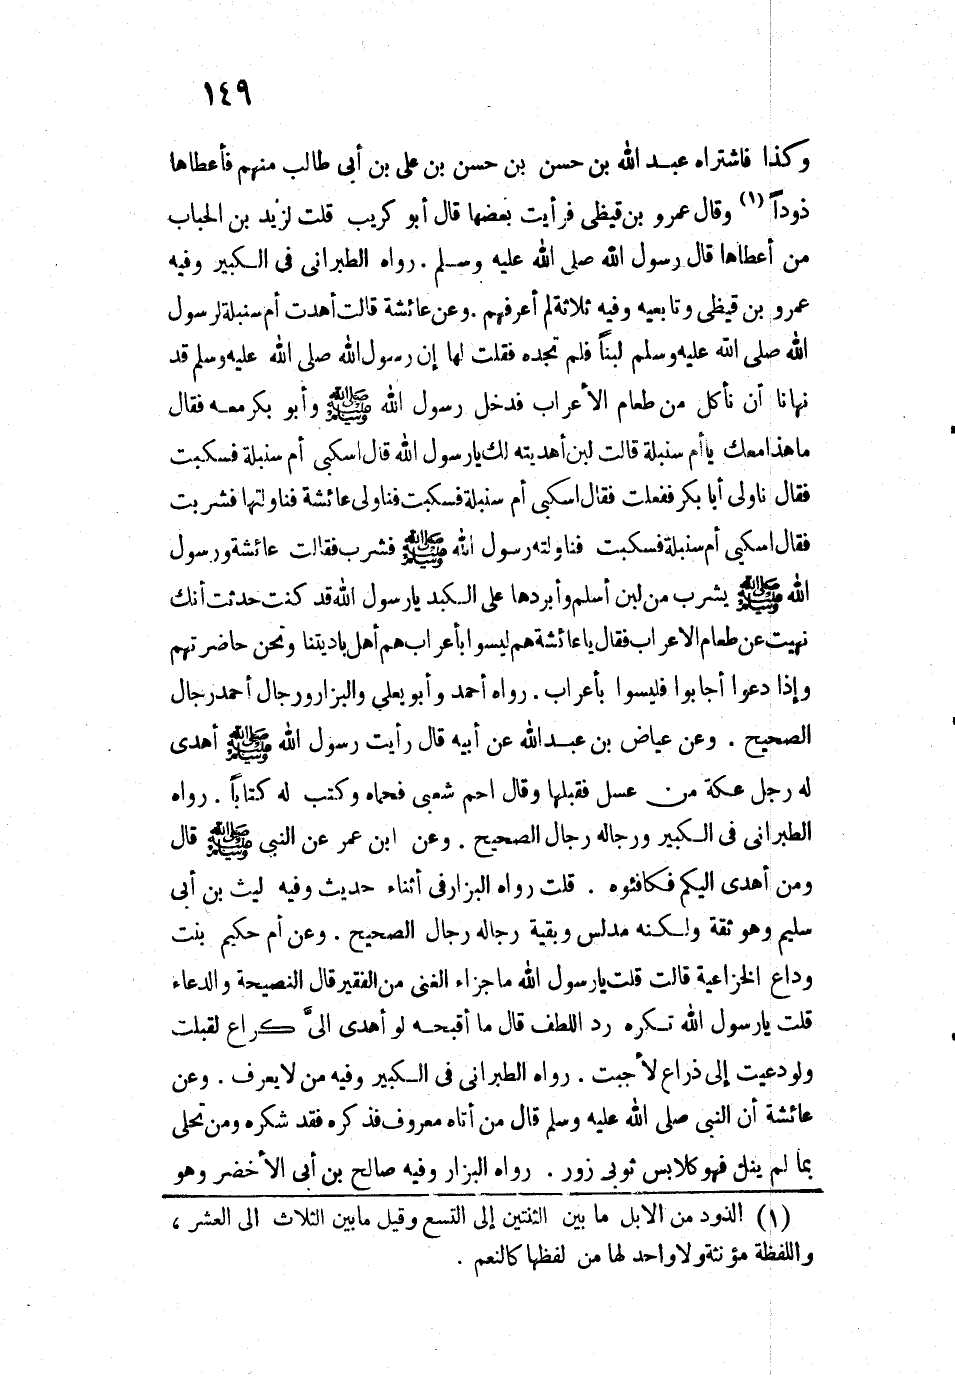 ١٤٩
وكذا فاشتراه عبد الله بن حسن بن حسن بن على بن أبى طالب منهم فأعطاها
ذوداً (١) وقال عمرو بن قيظى فرأيت بعضها قال أبو كريب قلت لزيد بن الحباب
من أعطاها قال رسول الله صلى الله عليه وسلم . رواه الطبرانى فى الكبير وفيه
عمرو بن قيظى وتابعيه وفيه ثلاثة لم أعرفهم . وعن عائشة قالت أهدت أم سنبلة لرسول
الله صلى الله عليه وسلم لبناً فلم تجده فقلت لها إن رسول الله صلى الله عليه وسلم قد
نهانا أن نأكل من طعام الأعراب فدخل رسول الله ﷺ وأبو بكر معه فقال
ما هذا معك يا أم سنبلة قالت لبن أهديته لك يا رسول الله قال اسكبى أم سنبلة فسكبت
فقال ناولى أبا بكر ففعلت فقال اسكبى أم سنبلة فسكبت فناولى عائشة فناولتها فشربت
فقال اسكبى أم سنبلة فسكبت فناولته رسول الله ﷺ فشرب فقالت عائشة ورسول
الله ﷺ يشرب من لبن أسلم وأبردها على الكبد يا رسول الله قد كنت حدثت أنك
نهيت عن طعام الاعراب فقال يا عائشة هم ليسوا بأعراب هم أهل باديتنا ونحن حاضرتهم
وإذا دعوا أجابوا فليسوا بأعراب . رواه أحمد وأبو يعلي والبزار ورجال أحمد رجال
الصحيح . وعن عياض بن عبد الله عن أبيه قال رأيت رسول الله ﷺ أهدى
له رجل عكة من عسل فقبلها وقال احم شعبى فحماه وكتب له كتاباً . رواه
الطبرانى فى الكبير ورجاله رجال الصحيح . وعن ابن عمر عن النبى ﷺ قال
ومن أهدى اليكم فكافئوه . قلت رواه البزار فى أثناء حديث وفيه ليث بن أبى
سليم وهو ثقة ولكنه مدلس وبقية رجاله رجال الصحيح . وعن أم حكيم بنت
وداع الخزاعية قالت قلت يا رسول الله ما جزاء الغنى من الفقير قال النصيحة والدعاء
قلت يا رسول الله تكره رد اللطف قال ما أقبحه لو أهدى الىَّ كراع لقبلت
ولو دعيت إلى ذراع لأجبت . رواه الطبرانى فى الكبير وفيه من لا يعرف . وعن
عائشة أن النبى صلى الله عليه وسلم قال من أتاه معروف فذكره فقد شكره ومن تحلى
بما لم ينل فهو كلابس ثوبى زور . رواه البزار وفيه صالح بن أبى الأخضر وهو
(١) الذود من الابل ما بين الثنتين إلى التسع وقيل ما بين الثلاث الى العشر ،
واللفظة مؤنثة ولا واحد لها من لفظها كالنعم .